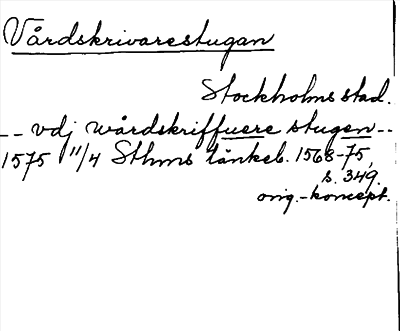 Vårdskrivarestugan
Stockholms stad.
-- vdj wårdskriffuere stugen--
1575 11/4 Sthms tänkeb. 1568-75,
s. 349.
orig.-koncept.